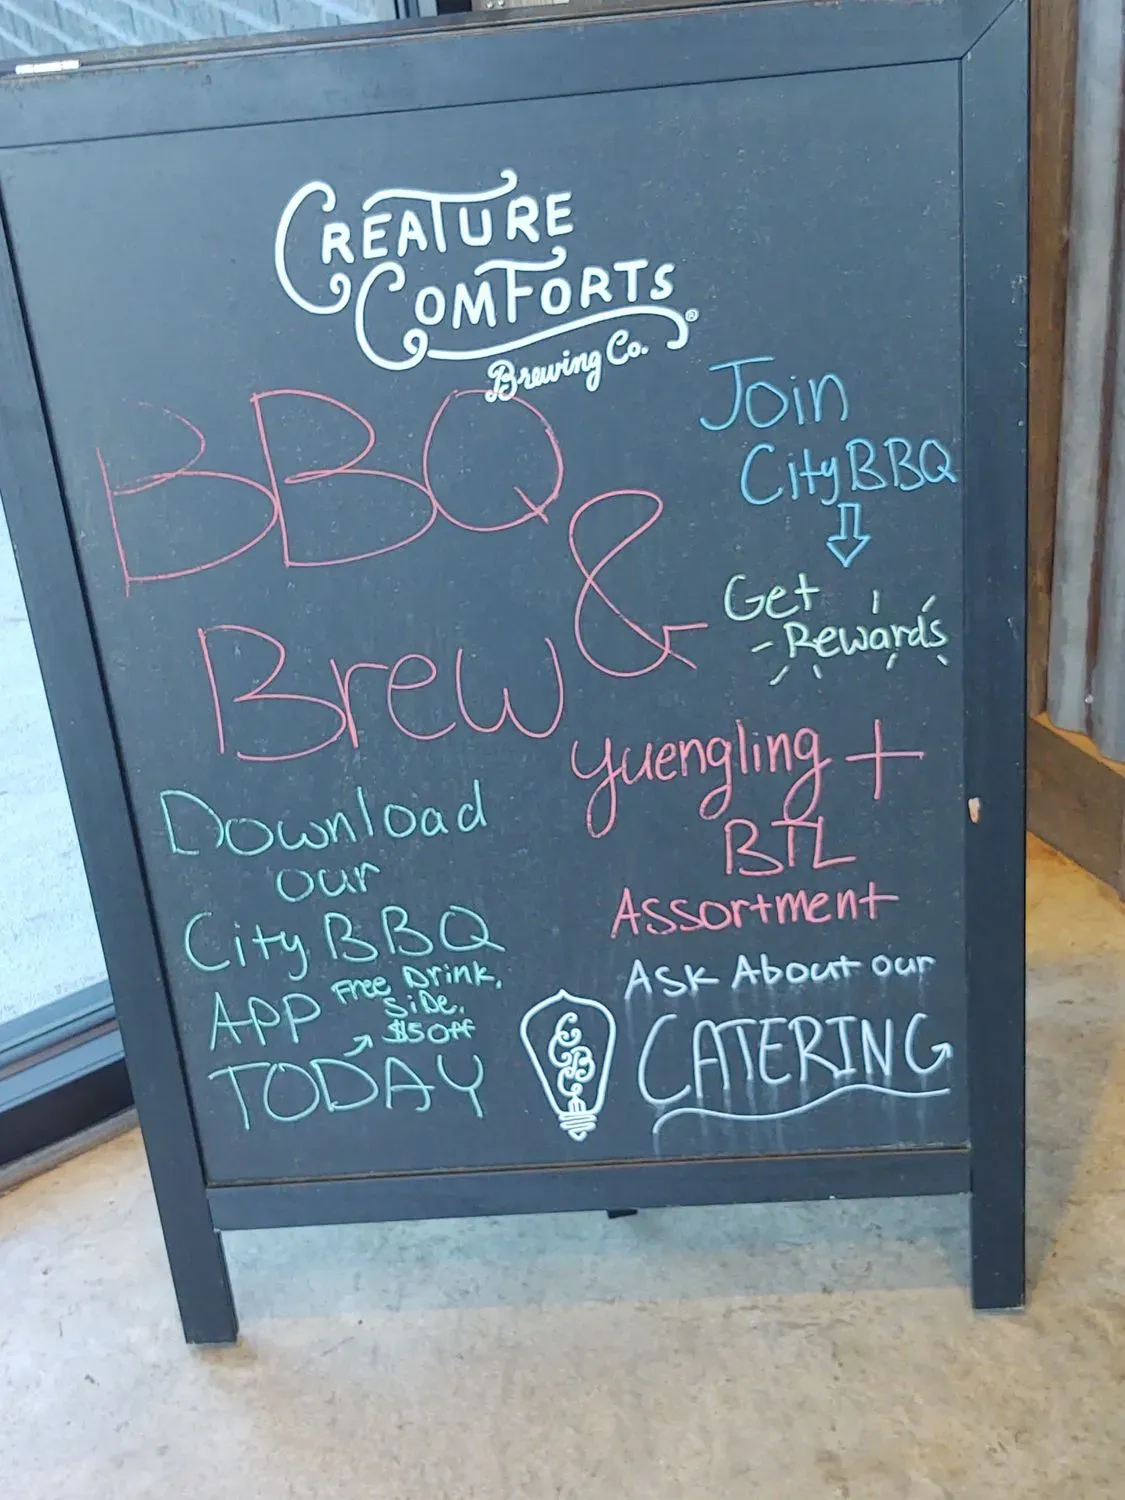 CREATURE
COMFORTS®
Brewing Co.
BBQ
&
Brew
Join
City BBQ
Get
Rewards
Yuengling +
BTL
Assortment
Download
our
City BBQ
APP
Free Drink,
Side,
$5 Off
TODAY
Ask About our
CATERING
CCBC